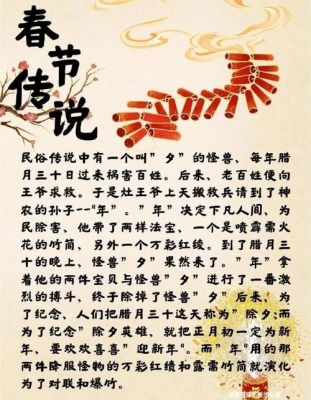 春节
传说
民俗传说中有一个叫"夕"的怪兽、每年腊
月三十日过来祸害百姓。后来、老百姓便向
王爷求救。于是灶王爷上天搬救兵请到了神
农的孙子--"年"。"年"决定下凡人间、为
民除害、他带了两样法宝、一个是喷霹雳火
花的竹筒、另外一个万彩红绫。到了腊月三
十的晚上、怪兽"夕"果然来了。"年"拿
着他的两件宝贝与怪兽"夕"进行了一番激
烈的搏斗、终于除掉了怪兽"夕"后来、为
了纪念、人们把腊月三十这天称为"除夕;而
为了纪念"除夕英雄、就把正月初一定为新
年、要欢欢喜喜"迎新年"。而"年"用的那
两件降服怪物的万彩红绩和霹雳竹筒就演化
为了对联和爆竹。